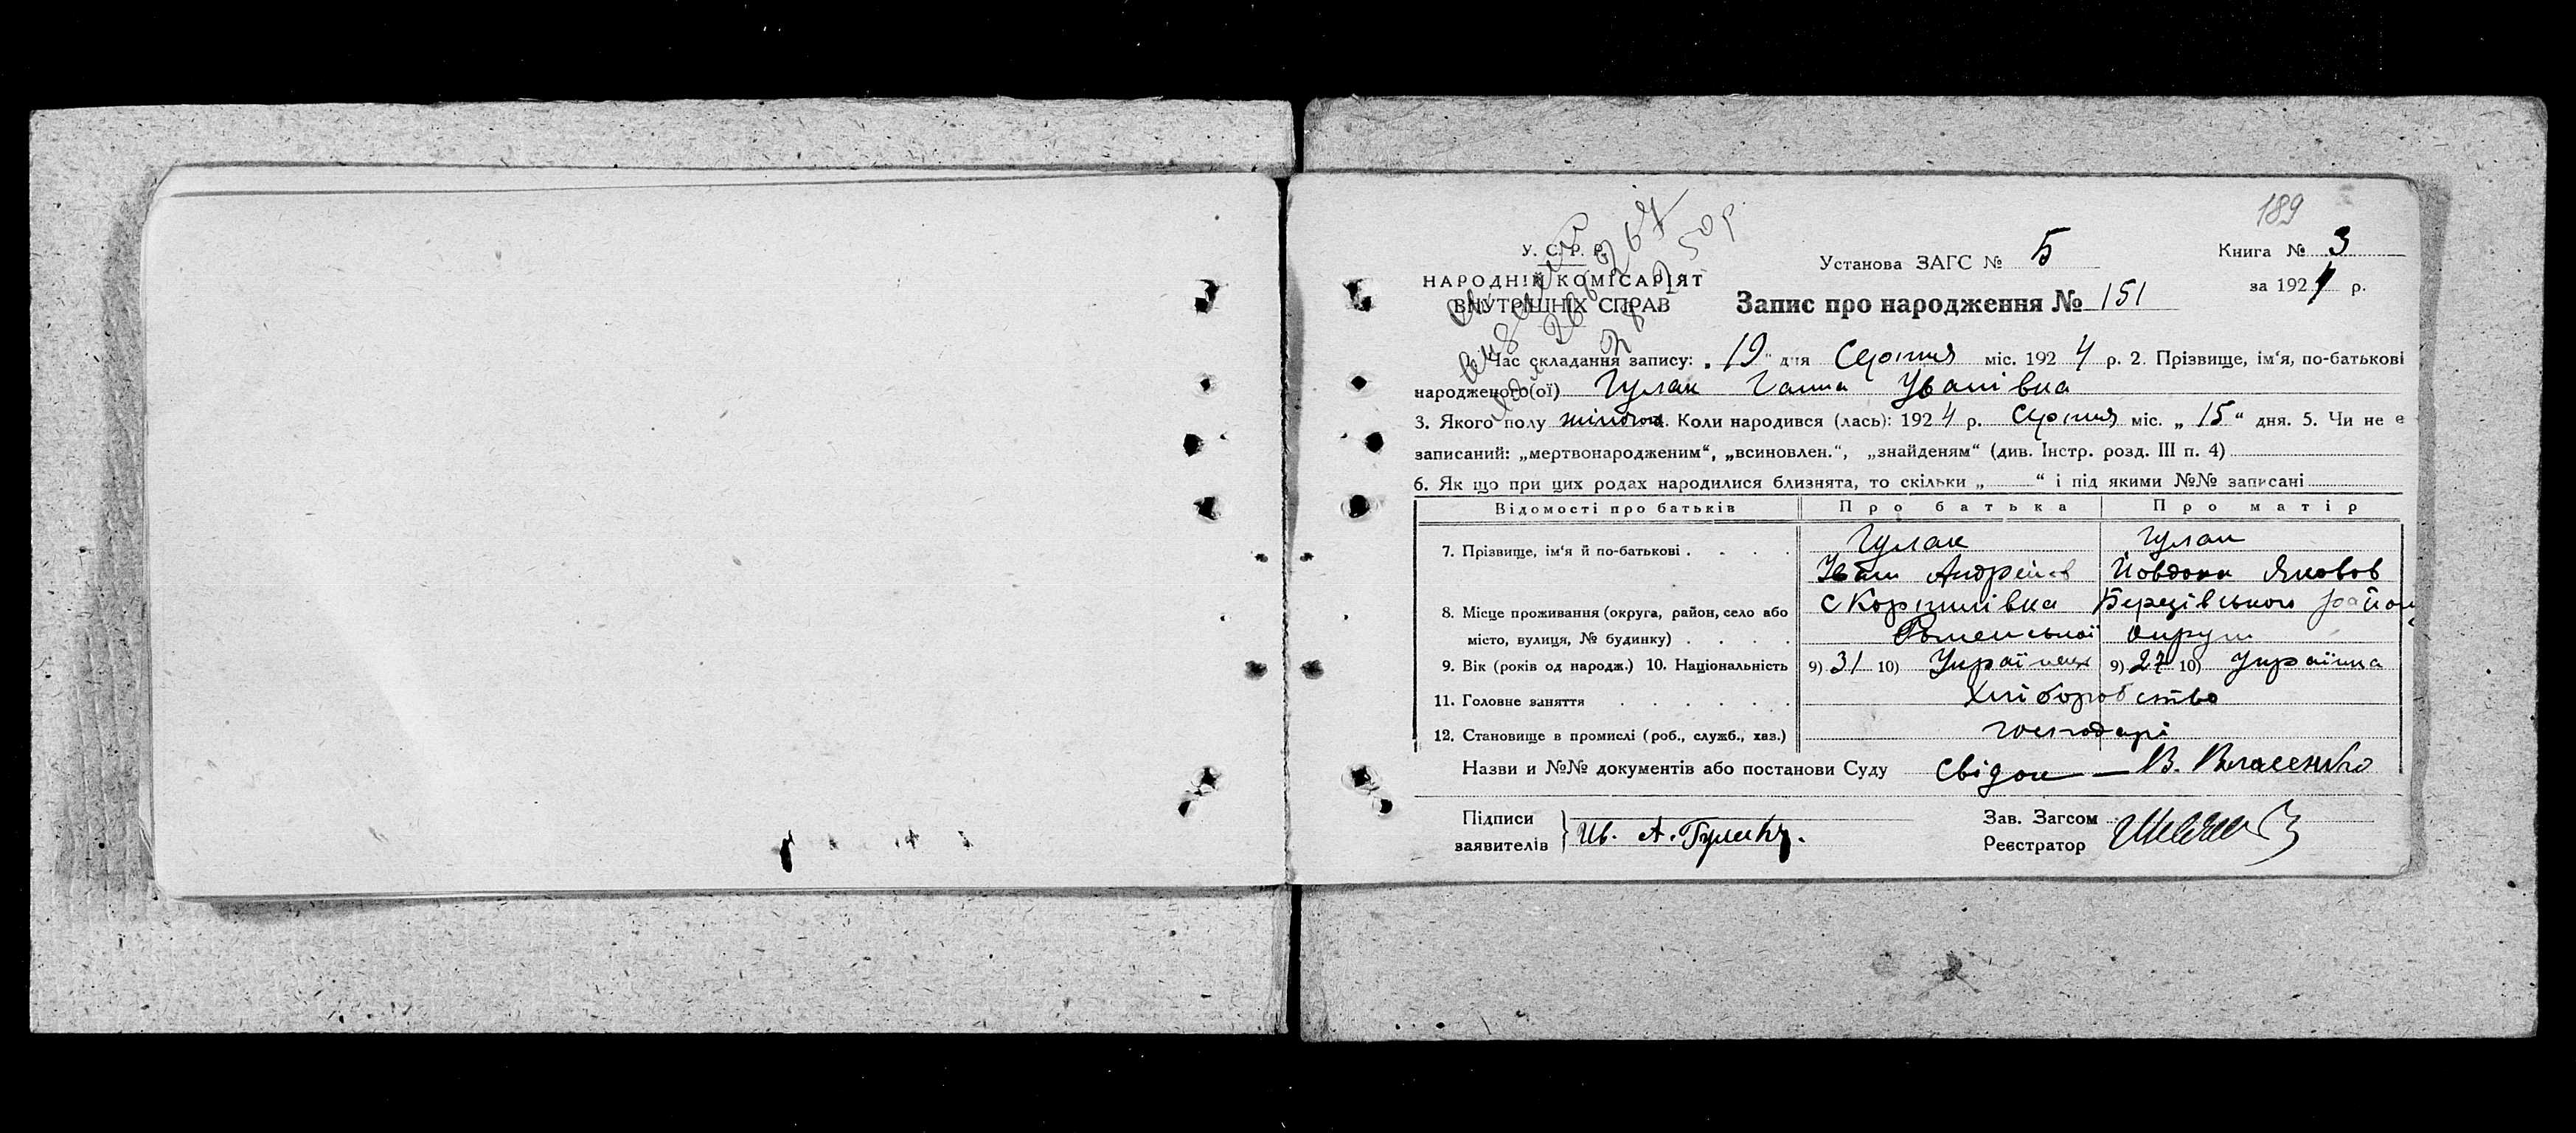 189
У. С. Р. Р.
НАРОДНІЙ КОМІСАРІЯТ
ВНУТРІШНІХ СПРАВ
Установа ЗАГС № 5
Книга № 3
за 1924 р.
Запис про народження № 151
1. Час складання запису: „19“ дня Серпня міс. 1924 р. 2. Прізвище, ім‘я, по-батькові
народженого(ої) Гулак Ганна Іванівна
3. Якого полу жіночої. Коли народився (лась): 1924 р. Серпня міс. „15“ дня. 5. Чи не є
записаний: „мертвонародженим“, „всиновлен.“, „знайденям“ (див. Інстр. розд. III п. 4)
6. Як що при цих родах народилися близнята, то скільки „ “ і під якими №№ записані
Відомості про батьків Про батька Про матір
7. Прізвище, ім‘я й по-батькові Гулак Гулак
Іван Андреїов Йовдоха Яковов
8. Місце проживання (округа, район, село або с Коржилівка Березівського район
місто, вулиця, № будинку) Роменської округи
9. Вік (років од народж.) 10. Національність 9) 31 10) Українець 9) 27 10) Українка
11. Головне заняття Хліборобство
12. Становище в промислі (роб., служб., хаз.) господарі
Назви и №№ документів або постанови Суду Свідок — В. Власенко
Підписи
заявителів Ив. А. Гулакъ.
Зав. Загсом
Реєстратор